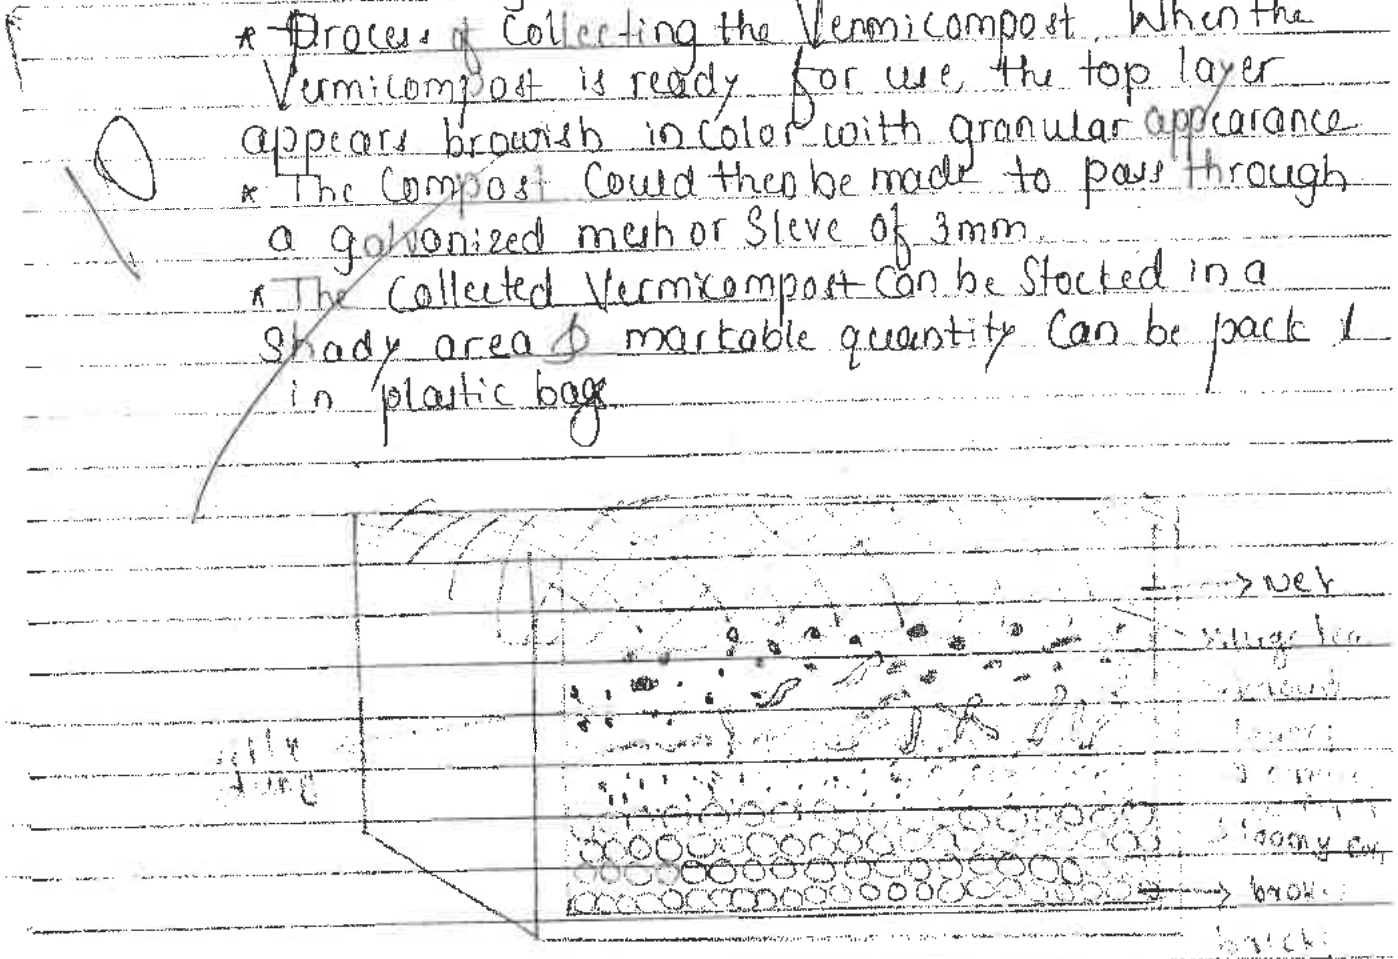 * Process of Collecting the Vermicompost. When the
Vermicompost is ready for use, the top layer
appears browish in color with granular appearance
* The Compost Could then be made to pass through
a galvanized mesh or Sleve of 3mm.
* The Collected Vermicompost Can be Stocked in a
Shady area & markable quantity Can be pack
in plastic bags
Net
layer
dung
loomy